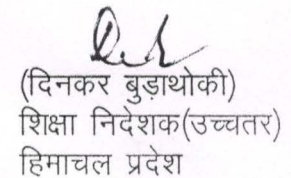 (दिनकर बुड़ाथोकी)
शिक्षा निदेशक(उच्चतर)
हिमाचल प्रदेश